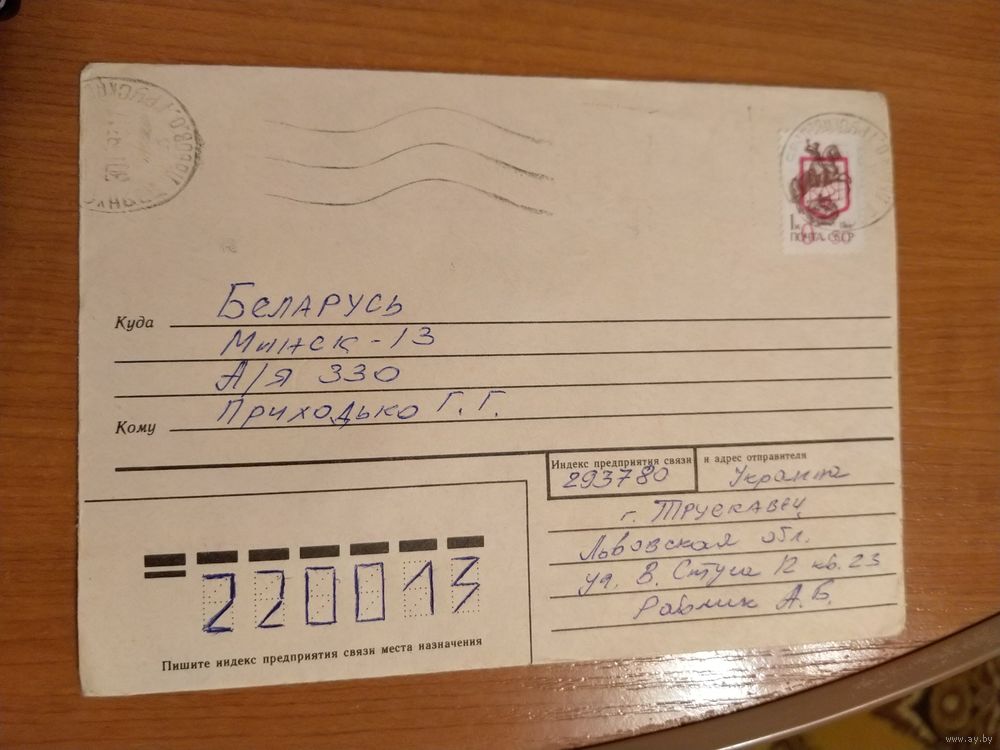 1к
ПОЧТА СССР
Куда Беларусь
Минск-13
А/я 330
Кому Приходько Г. Г.
Индекс предприятия связи и адрес отправителя
293780 Украина
г. Трускавец
Львовская обл.
ул. В. Стуса 12 кв. 23
А.Б.
220013
Пишите индекс предприятия связи места назначения
www.ay.by